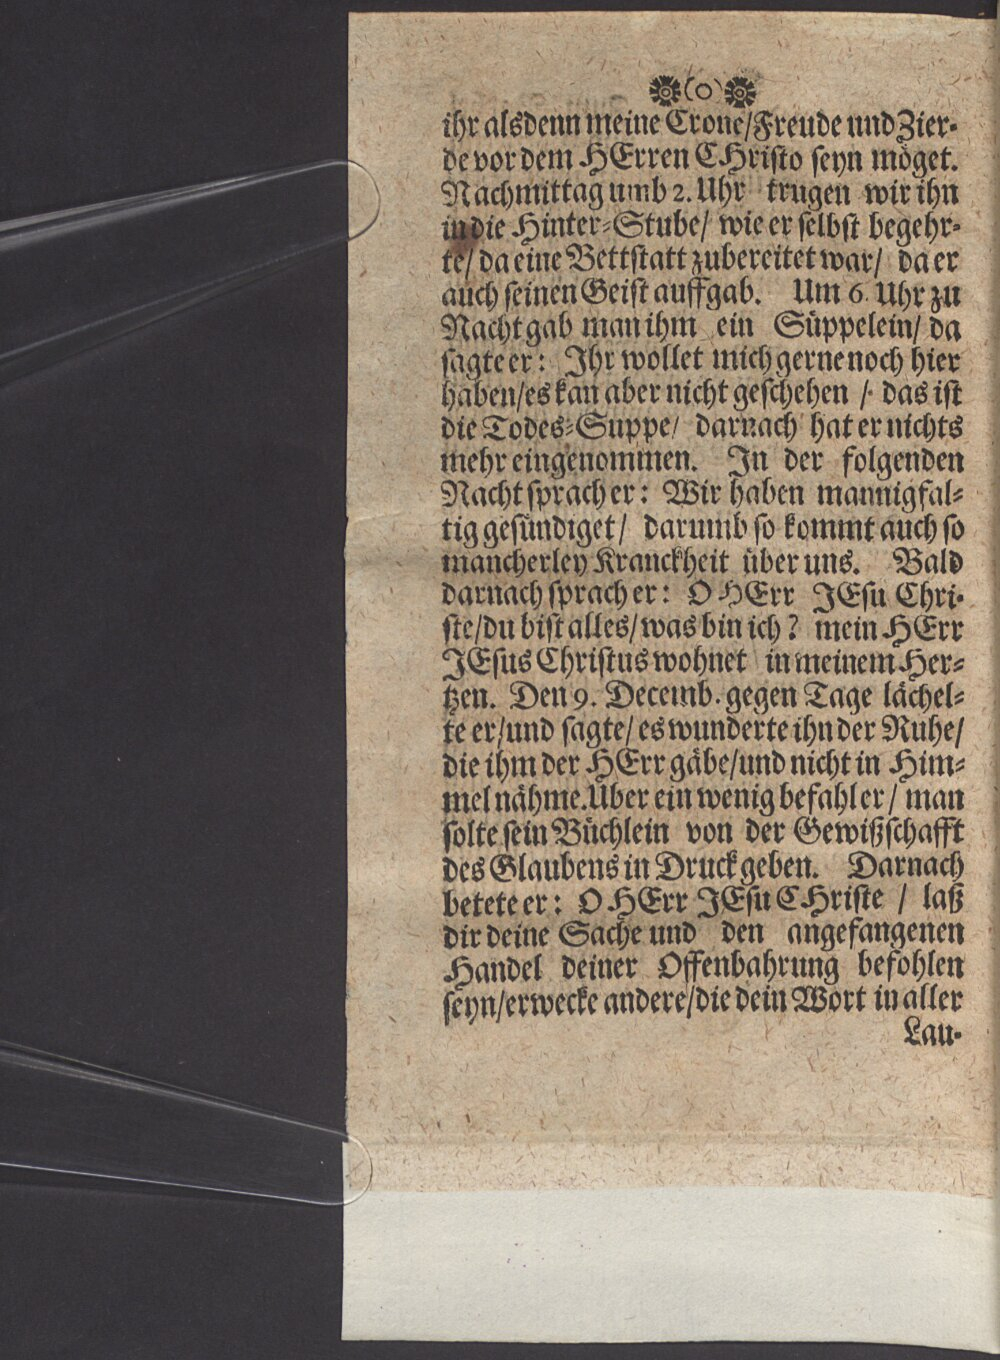 (o)
ihr alsdenn meine Crone/Freude und Zier-
de vor dem HErren CHristo seyn möget.
Nachmittag umb 2. Uhr trugen wir ihn
in die Hinter-Stube/ wie er selbst begehr-
te/ da eine Bettstatt zubereitet war/ da er
auch seinen Geist auffgab. Um 6. Uhr zu
Nacht gab man ihm ein Süppelein/ da
sagte er: Ihr wollet mich gerne noch hier
haben/es kan aber nicht geschehen / das ist
die Todes-Suppe/ darnach hat er nichts
mehr eingenommen. In der folgenden
Nacht sprach er: Wir haben mannigfal-
tig gesündiget/ darumb so kommt auch so
mancherley Kranckheit über uns. Bald
darnach sprach er: O HErr JEsu Chri-
ste/du bist alles/was bin ich? mein HErr
JEsus Christus wohnet in meinem Her-
tzen. Den 9. Decemb. gegen Tage lächel-
te er/und sagte/ es wunderte ihn der Ruhe/
die ihm der HErr gäbe/und nicht in Him-
mel nähme.Uber ein wenig befahl er/ man
solte sein Büchlein von der Gewißschafft
des Glaubens in Druck geben. Darnach
betete er: O HErr JEsu CHriste / laß
dir deine Sache und den angefangenen
Handel deiner Offenbahrung befohlen
seyn/erwecke andere/die dein Wort in aller
Lau-